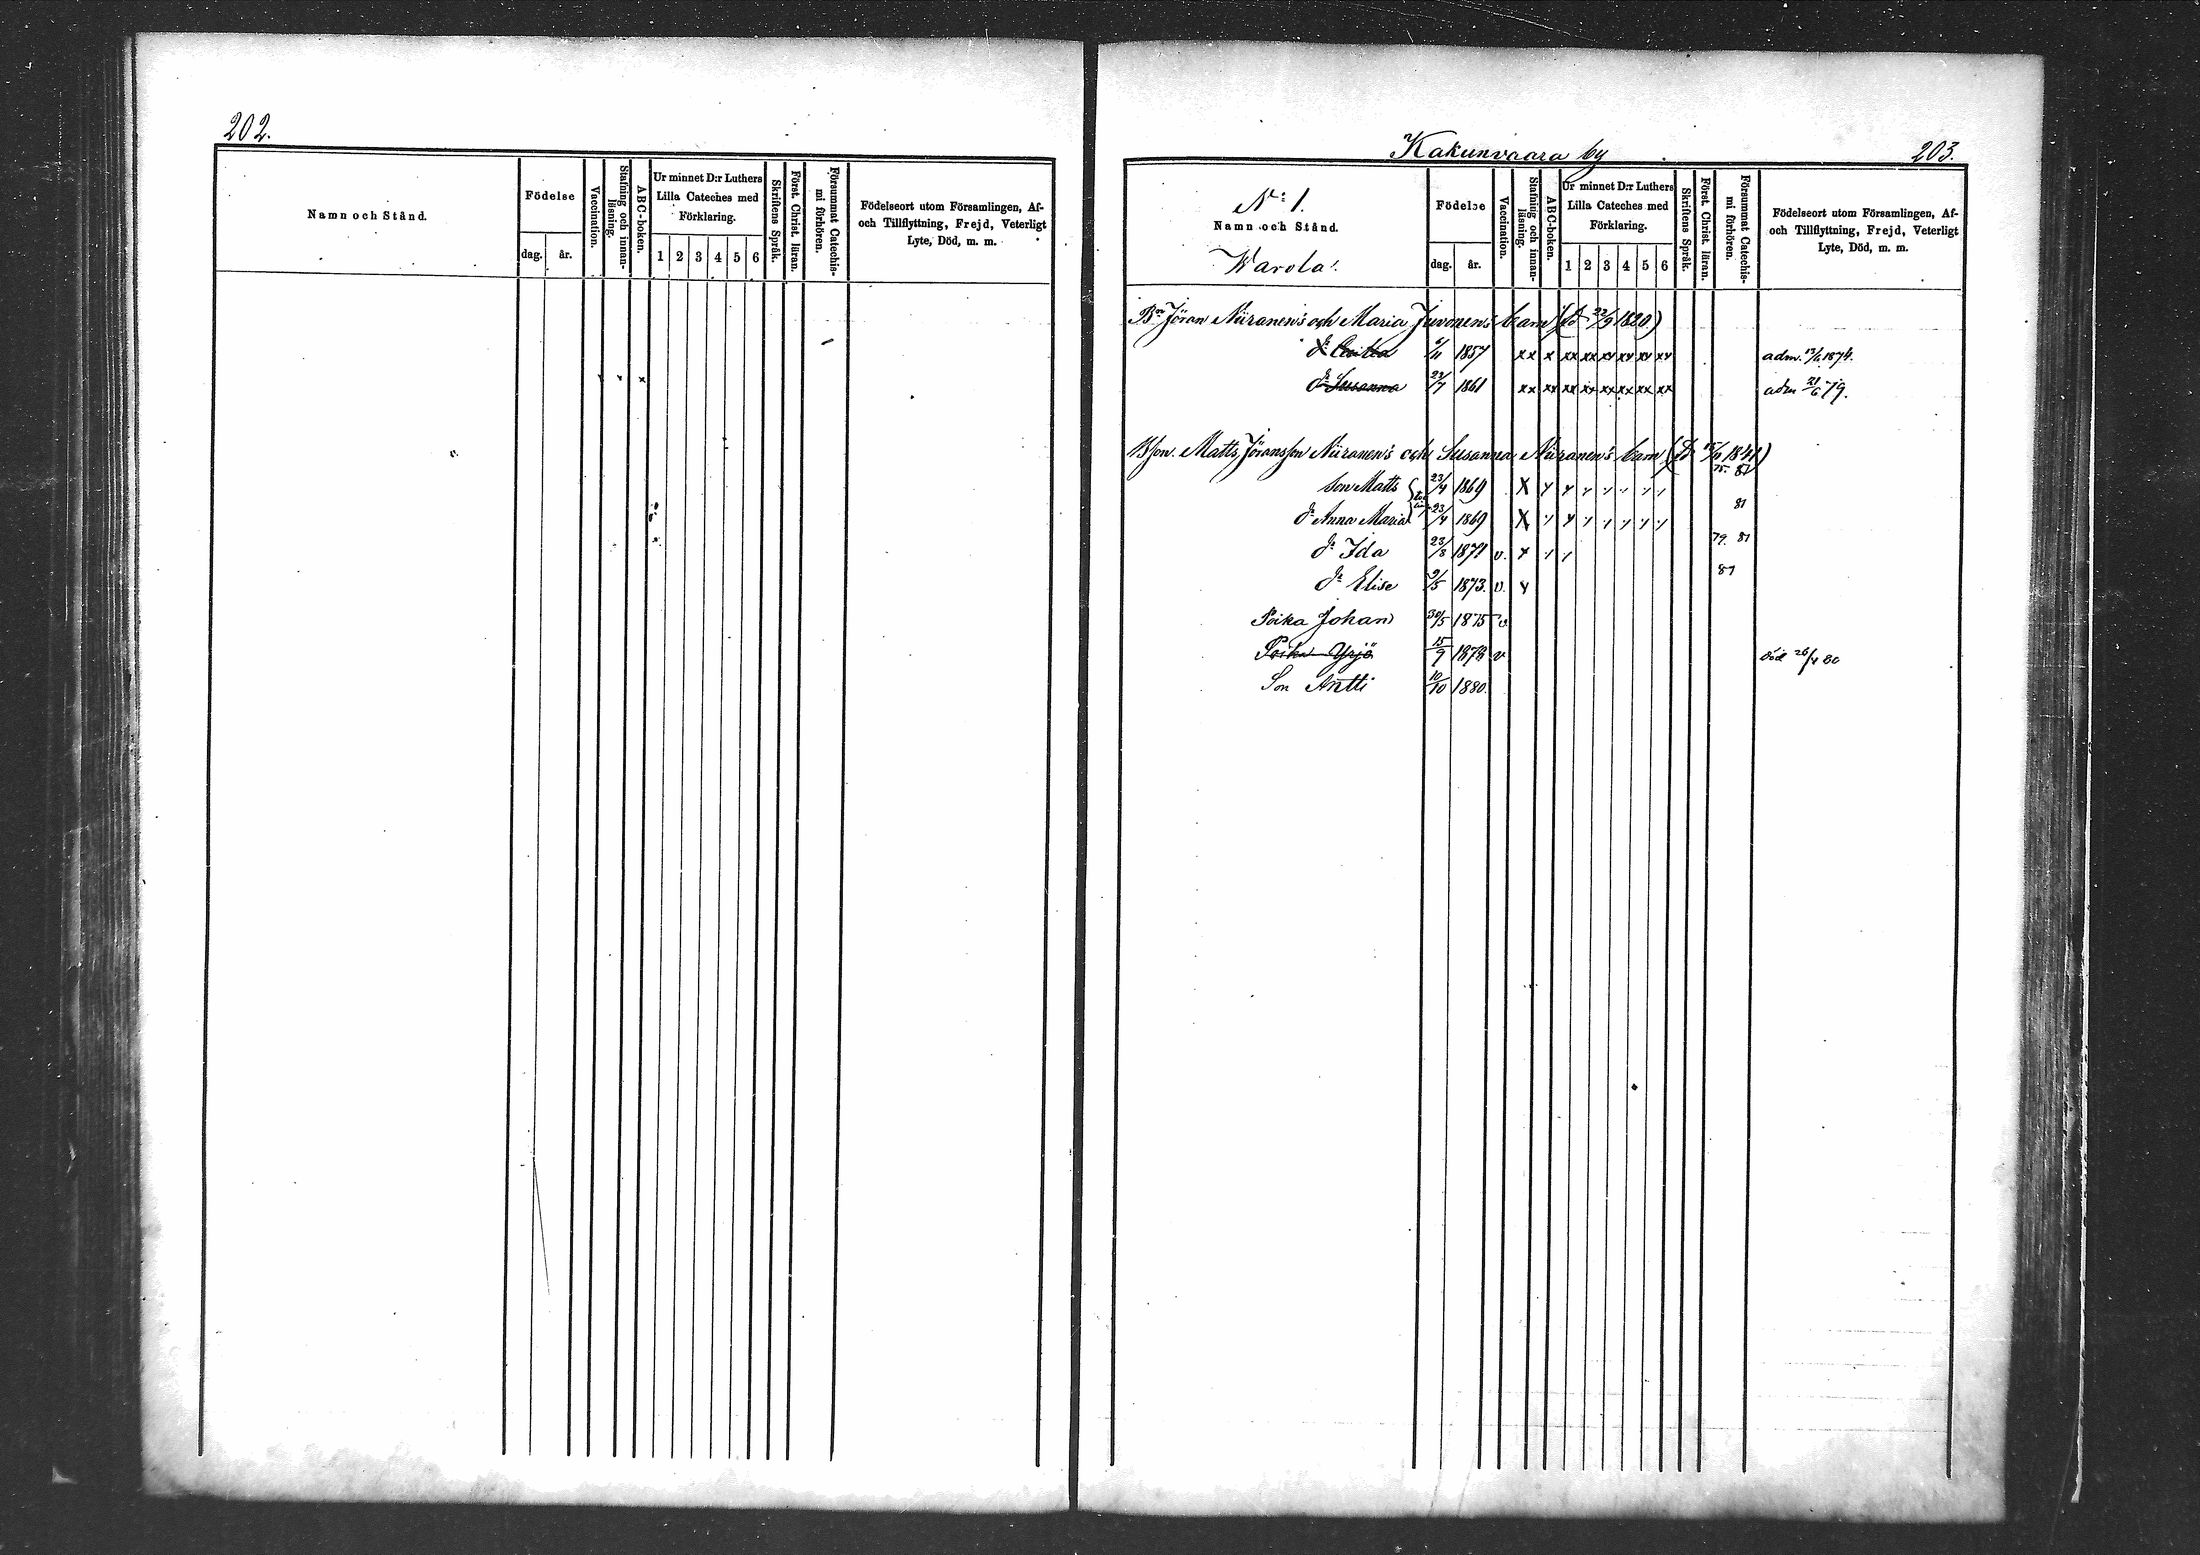 202.
Namn och Stånd.
Födelse
dag.
år.
Vaccination.
Stafning och innan-
läsning.
ABC-boken.
Ur minnet D:r Luthers
Lilla Cateches med
Förklaring.
1 2 3 4 5 6
Skriftens Språk.
Först. Christ. läran.
Försummat Catechis-
mi förhören.
Födelseort utom Församlingen, Af-
och Tillflyttning, Frejd, Veterligt
Lyte, Död, m. m.
Kakunvaara by
203.
N:o 1.
Namn och Stånd.
Warola.
Födelse
dag.
år.
Vaccination.
Stafning och innan-
läsning.
ABC-boken.
Ur minnet D:r Luthers
Lilla Cateches med
Förklaring.
1 2 3 4 5 6
Skriftens Språk.
Först. Christ. läran.
Försummat Catechis-
mi förhören.
Födelseort utom Församlingen, Af-
och Tillflyttning, Frejd, Veterligt
Lyte, Död, m. m.
Bn Jöran Niiranen's och Maria Juvonen's barn (fd 22/9 1820)
dr 6/11 1857 xx x xx xx xx xx xx xx adm. 1874.
dr Susanna 23/7 1861 xx xx xx xx xx xx xx xx adm 21/6 79.
Bson. Matts Jöransson Niiranen's och Susanna Niiranen's barn (fd 1841)
son Matts 23/4 1869 75. 81
dr Anna Maria 23/4 1869 81
dr Ida 23/3 1871 v. 79. 81
dr Elise 9/5 1873. v. 81
Poika Johan 30/5 1875 v.
Poika Yrjö 15/9 1878 v död 26/4 80
Son Antti 10/10 1880.